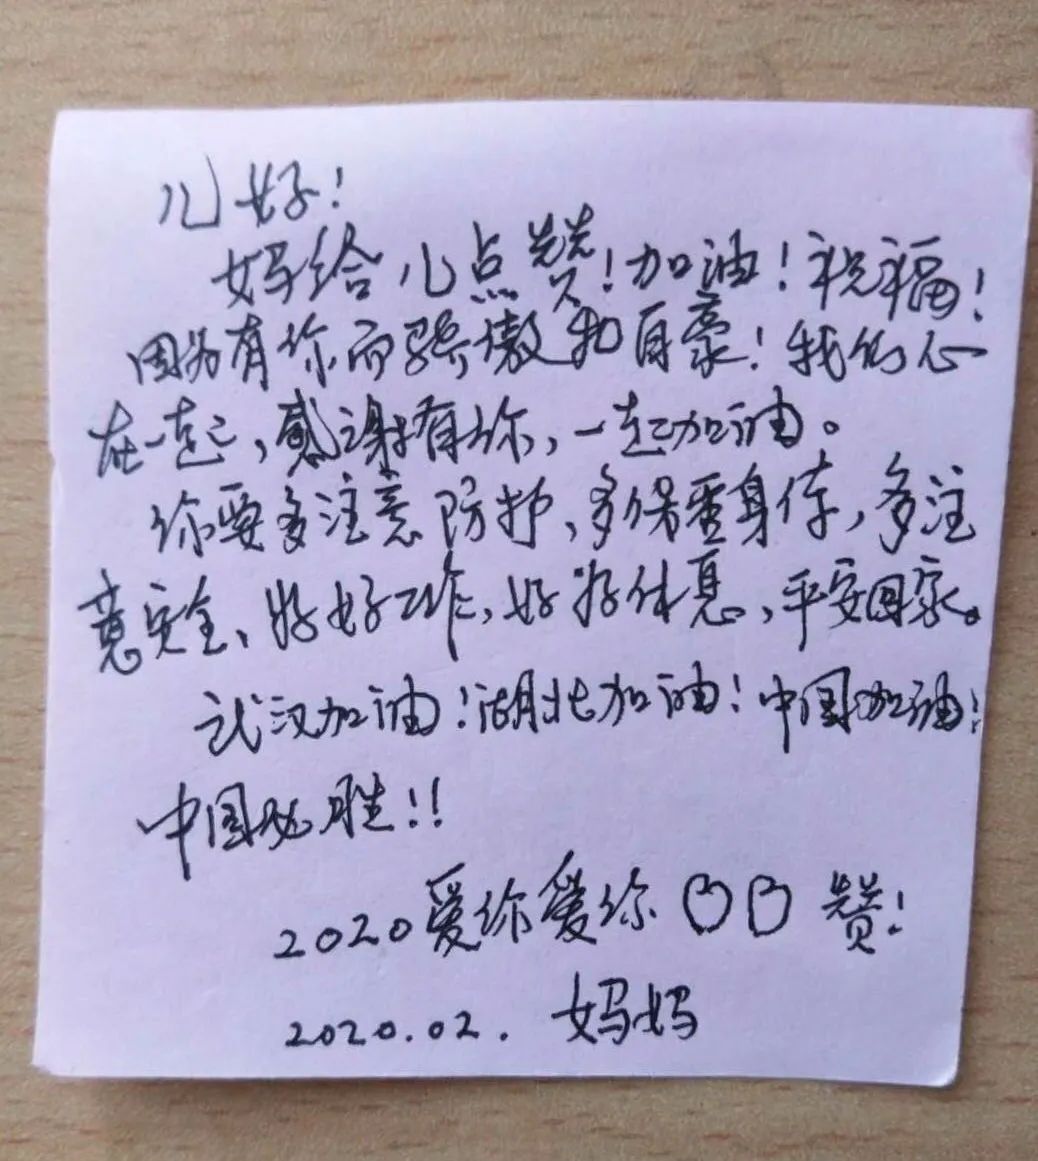 儿好！
妈给儿点赞！加油！祝福！
因为有你而骄傲和自豪！我们心
在一起，感谢有你，一起加油。
你要多注意防护、多保重身体，多注
意安全、好好工作，好好休息，平安回家。
武汉加油！湖北加油！中国加油！
中国必胜！！
2020爱你爱你 赞！
2020.02. 妈妈